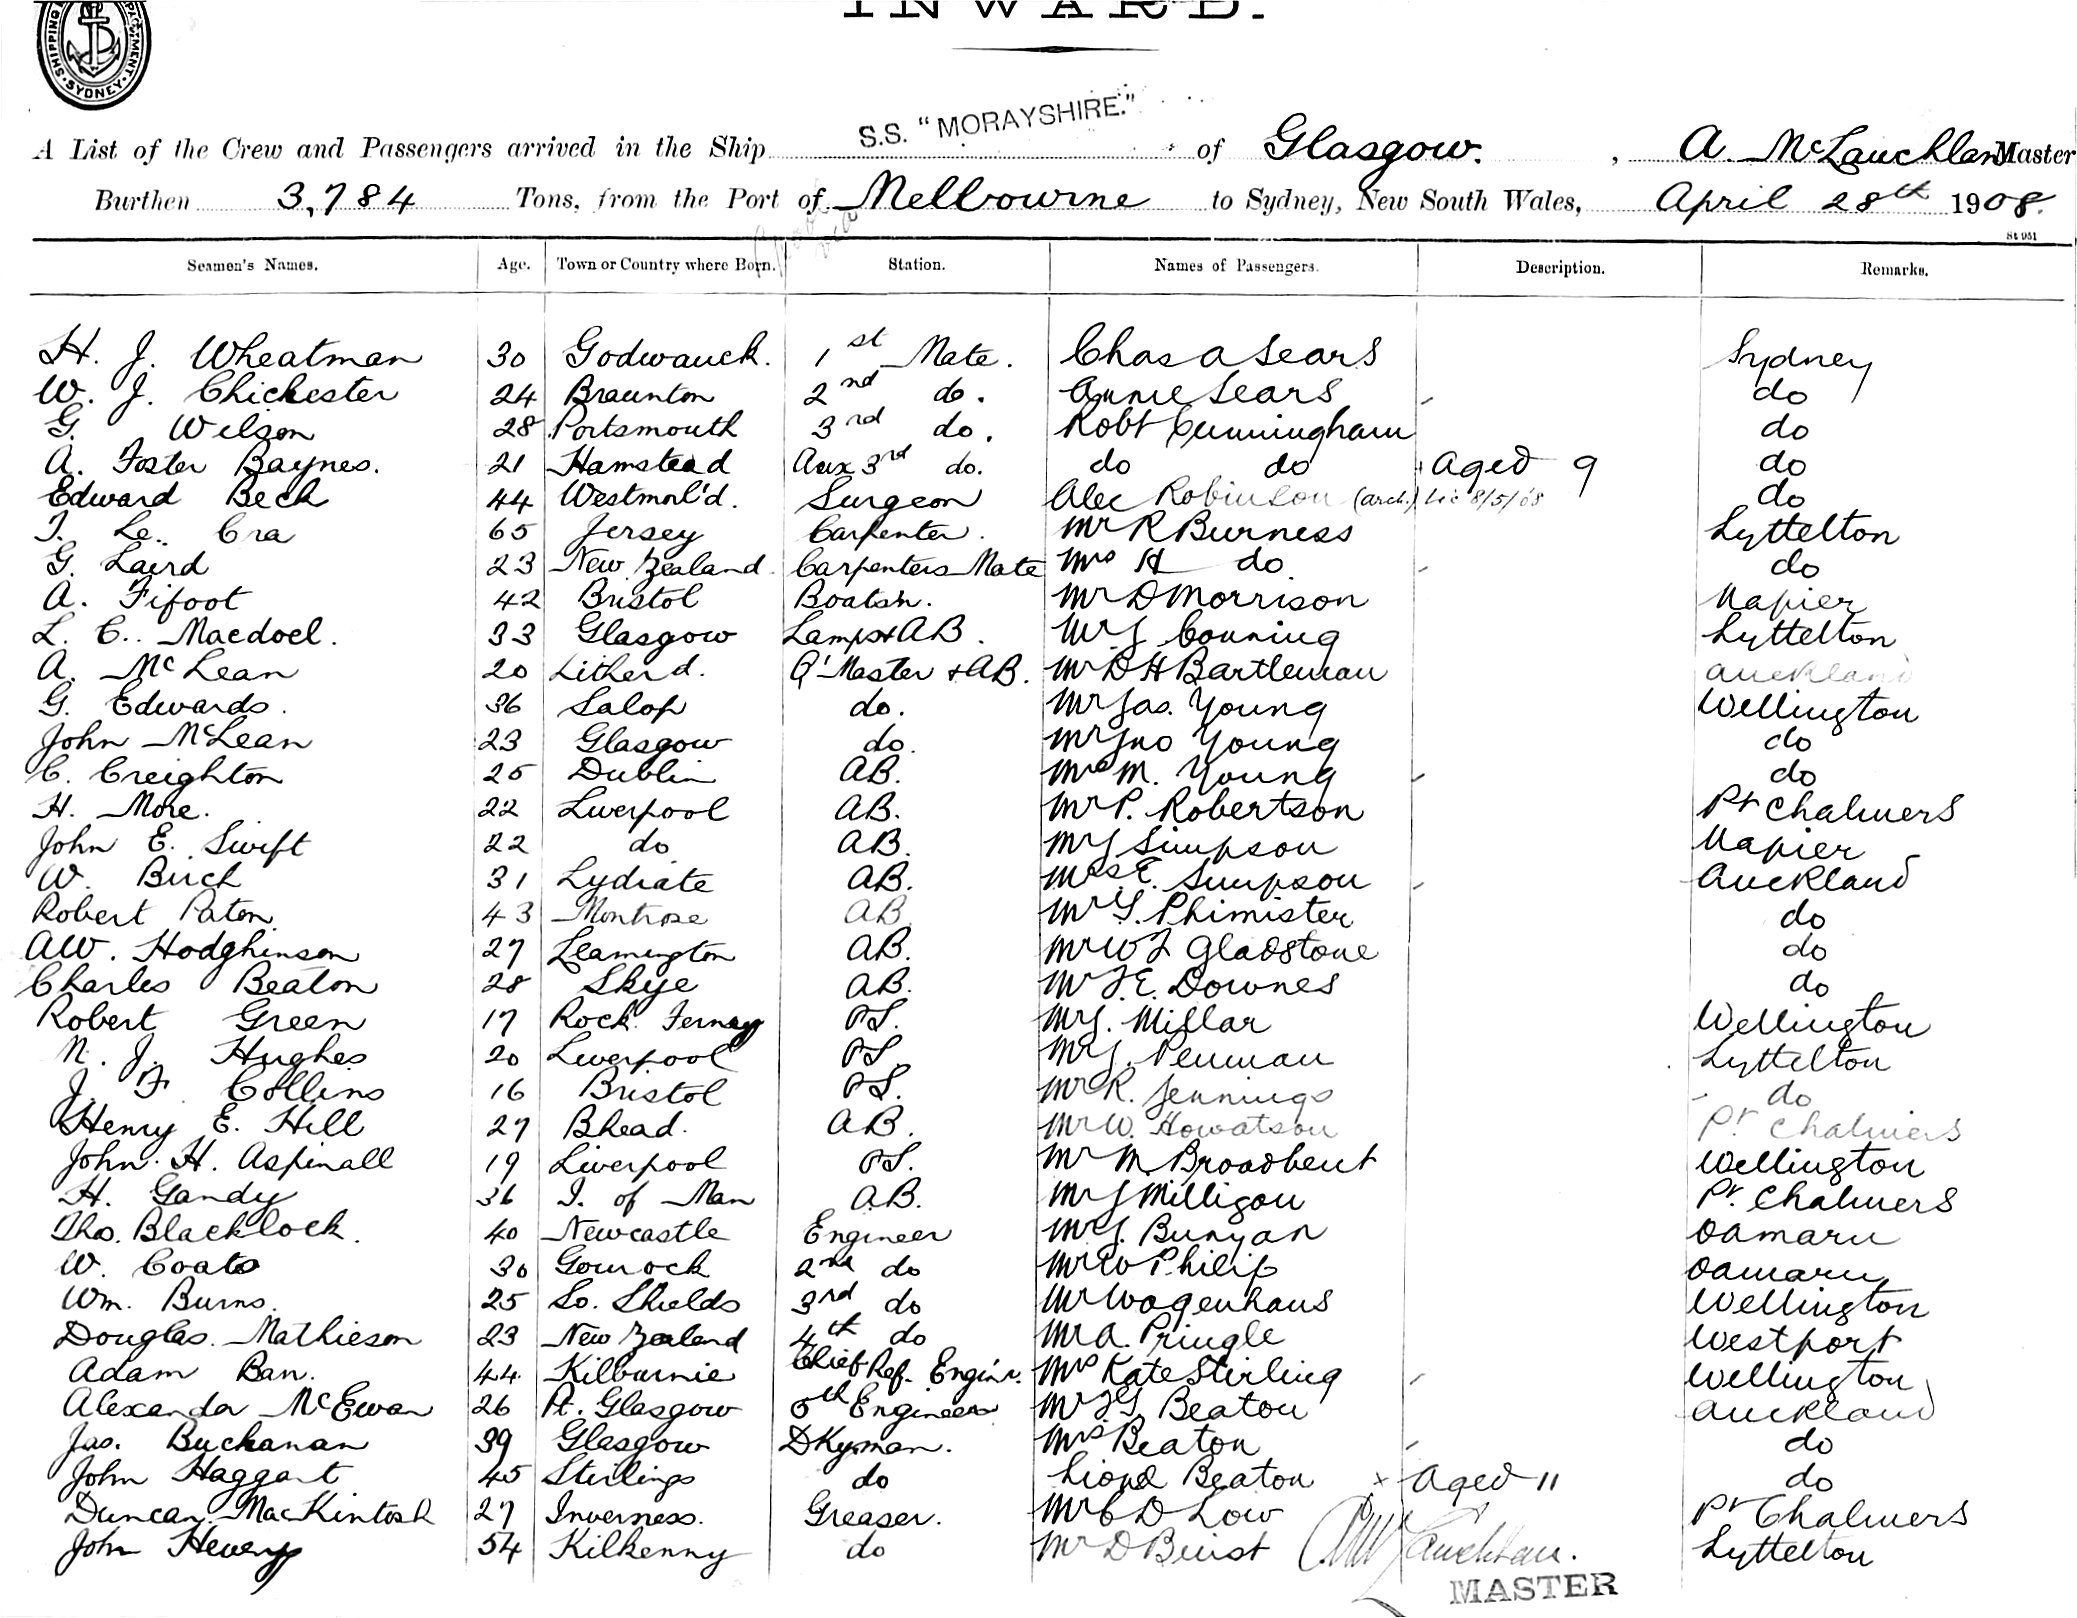 SHIPPING DEPARTMENT. SYDNEY.
INWARD.
S.S. "MORAYSHIRE."
A List of the Crew and Passengers arrived in the Ship of Glasgow. , A. McLauchlan Master
Burthen 3,784 Tons, from the Port of Melbourne to Sydney, New South Wales, April 28th 1908.
St 951
Seamen's Names. Age. Town or Country where Born. Station. Names of Passengers. Description. Remarks.
H. J. Wheatman 30 Godwauck. 1st Mate. Chas A Sears Sydney
W. J. Chichester 24 Braunton 2nd do. Annie Sears do
G. Wilson 28 Portsmouth 3rd do. Robt Cunningham do
A. Foster Baynes. 21 Hamstead Aux 3rd do. do do Aged 9 do
Edward Beck 44 Westmorl'd. Surgeon Alec Robinson (arch.) Lic 8/5/08 do
T. Le.. Cra 65 Jersey Carpenter. Mr R Burness Lyttelton
G. Laird 23 New Zealand. Carpenters Mate Mrs H do do
A. Fifoot 42 Bristol Boatsn. Mr D Morrison Napier
L. C.. Macdoel. 33 Glasgow Lamps & AB. Mr J Conning Lyttelton
A. McLean 20 Litherd. Qr Master & AB. Mr D H Bartleman Auckland
G. Edwards. 36 Salop do. Mr Jas. Young Wellington
John McLean 23 Glasgow do. Mr Jno Young do
C. Creighton 25 Dublin AB. Mrs M. Young do
H. More. 22 Liverpool AB. Mr P. Robertson Pt Chalmers
John E. Swift 22 do AB. Mr J Simpson Napier
W. Birch 31 Lydiate AB. Mrs E. Simpson Auckland
Robert Paton 43 Montrose AB Mr G. Phimister do
AW. Hodghinson 27 Leamington AB. Mr W J Gladstone do
Charles Beaton 28 Skye AB. Mr F. E. Downes do
Robert Green 17 Rock. Ferney OS. Mr J. Millar Wellington
N. J. Hughes 20 Liverpool OS. Mr J. Penman Lyttelton
J. F. Collins 16 Bristol OS. Mr R. Jennings do
Henry E. Hill 27 Bhead. AB. Mr W. Howatson Pt Chalmers
John. H. Aspinall 19 Liverpool OS. Mr M Broadbent Wellington
H. Gandy 36 I. of Man AB. Mr J Milligon Pt. Chalmers
Thos. Blacklock. 40 Newcastle Engineer Mr J. Bunyan Oamaru
W. Coats 30 Gourock 2nd do Mr W Philip Oamaru
Wm. Burns. 25 So. Shields 3rd do Mr Wagenhaus Wellington
Douglas. Mathieson 23 New Zealand 4th do Mr A. Pringle Westport
Adam Ban. 44 Kilburnie Chief Ref. Enginr. Mrs Kate Stirling Wellington
Alexander McEwan 26 Pt. Glasgow 5th Engineer Mr J G Beaton Auckland
Jas. Buchanan 39 Glasgow DKyman. Mrs Beaton do
John Haggart 45 Stirlings do Lionel Beaton x Aged 11 do
Duncan MacKintosh 27 Inverness. Greaser. Mr C D Low Pt Chalmers
John Heverp 54 Kilkenny do Mr D Buist A McLauchlan. Lyttelton
MASTER